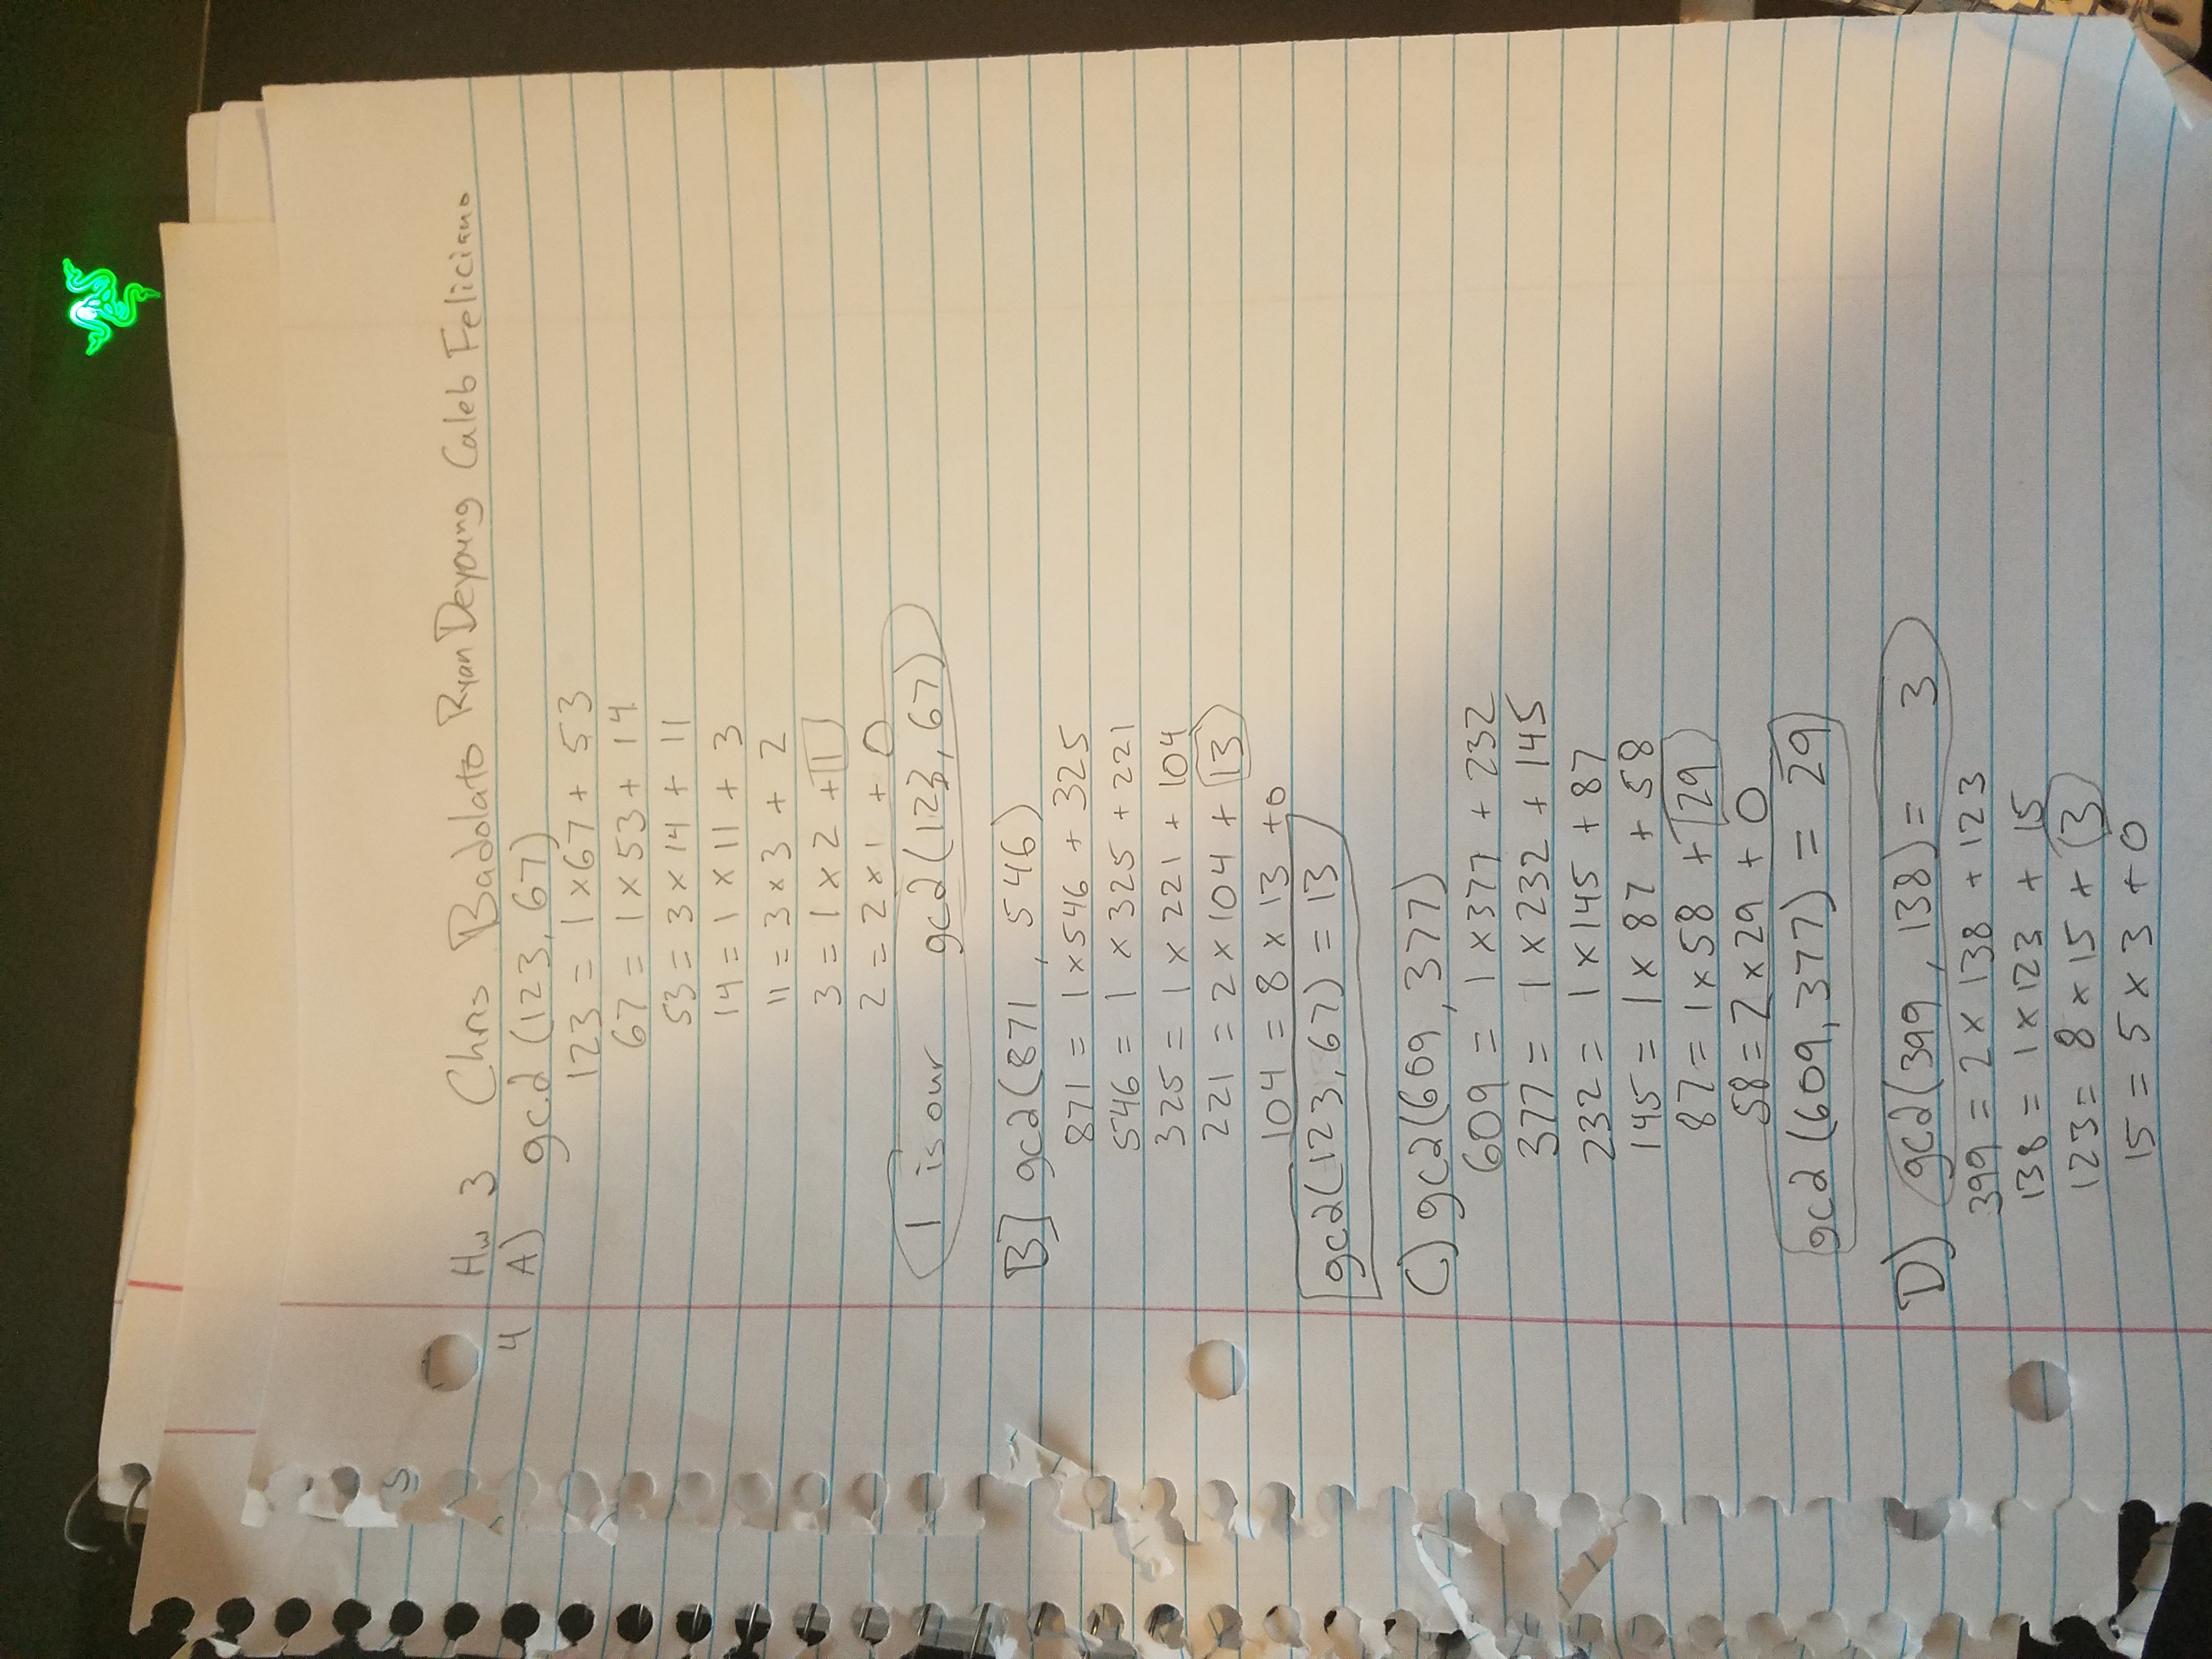 Hw 3 Chris Badolato Ryan Deyoung Caleb Feliciano
4 A) gcd (123, 67)
123 = 1 x 67 + 53
67 = 1 x 53 + 14
53 = 3 x 14 + 11
14 = 1 x 11 + 3
11 = 3 x 3 + 2
3 = 1 x 2 + 1
2 = 2 x 1 + 0
1 is our gcd(123, 67)
B] gcd(871, 546)
871 = 1 x 546 + 325
546 = 1 x 325 + 221
325 = 1 x 221 + 104
221 = 2 x 104 + 13
104 = 8 x 13 + 0
gcd(123, 67) = 13
C) gcd(609, 377)
609 = 1 x 377 + 232
377 = 1 x 232 + 145
232 = 1 x 145 + 87
145 = 1 x 87 + 58
87 = 1 x 58 + 29
58 = 2 x 29 + 0
gcd (609, 377) = 29
D) gcd(399, 138) = 3
399 = 2 x 138 + 123
138 = 1 x 123 + 15
123 = 8 x 15 + 3
15 = 5 x 3 + 0